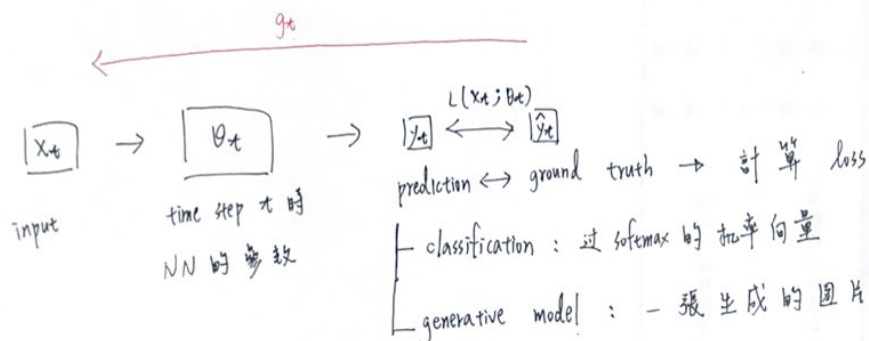 gₜ
L(xₜ;θₜ)
xₜ → θₜ → yₜ ↔ ŷₜ
input
time step t 時
NN 的參数
prediction ↔ ground truth → 計算 loss
classification : 过 softmax 的 机率向量
generative model : 一張生成的図片